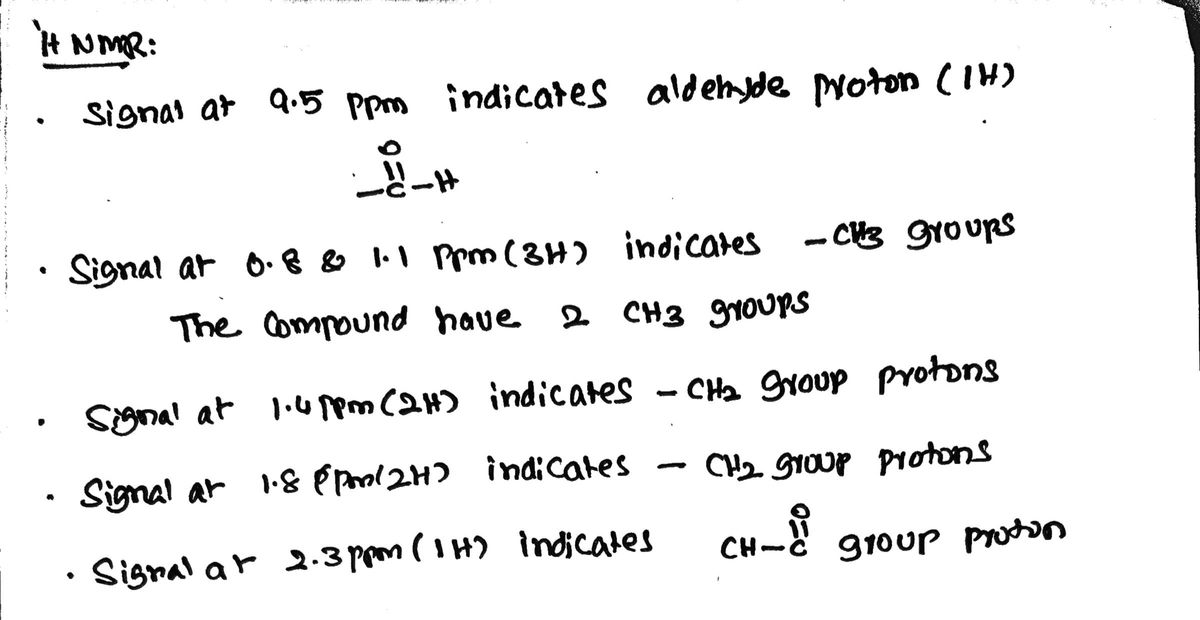 ¹H NMR:
• Signal at 9.5 ppm indicates aldehyde proton (1H)
O
||
—C—H
• Signal at 0.8 & 1.1 ppm (3H) indicates –CH3 groups
The Compound have 2 CH3 groups
• Signal at 1.4 ppm (2H) indicates – CH2 group protons
• Signal at 1.8 ppm (2H) indicates – CH2 group protons
O
||
• Signal at 2.3 ppm (1H) indicates CH–C group proton